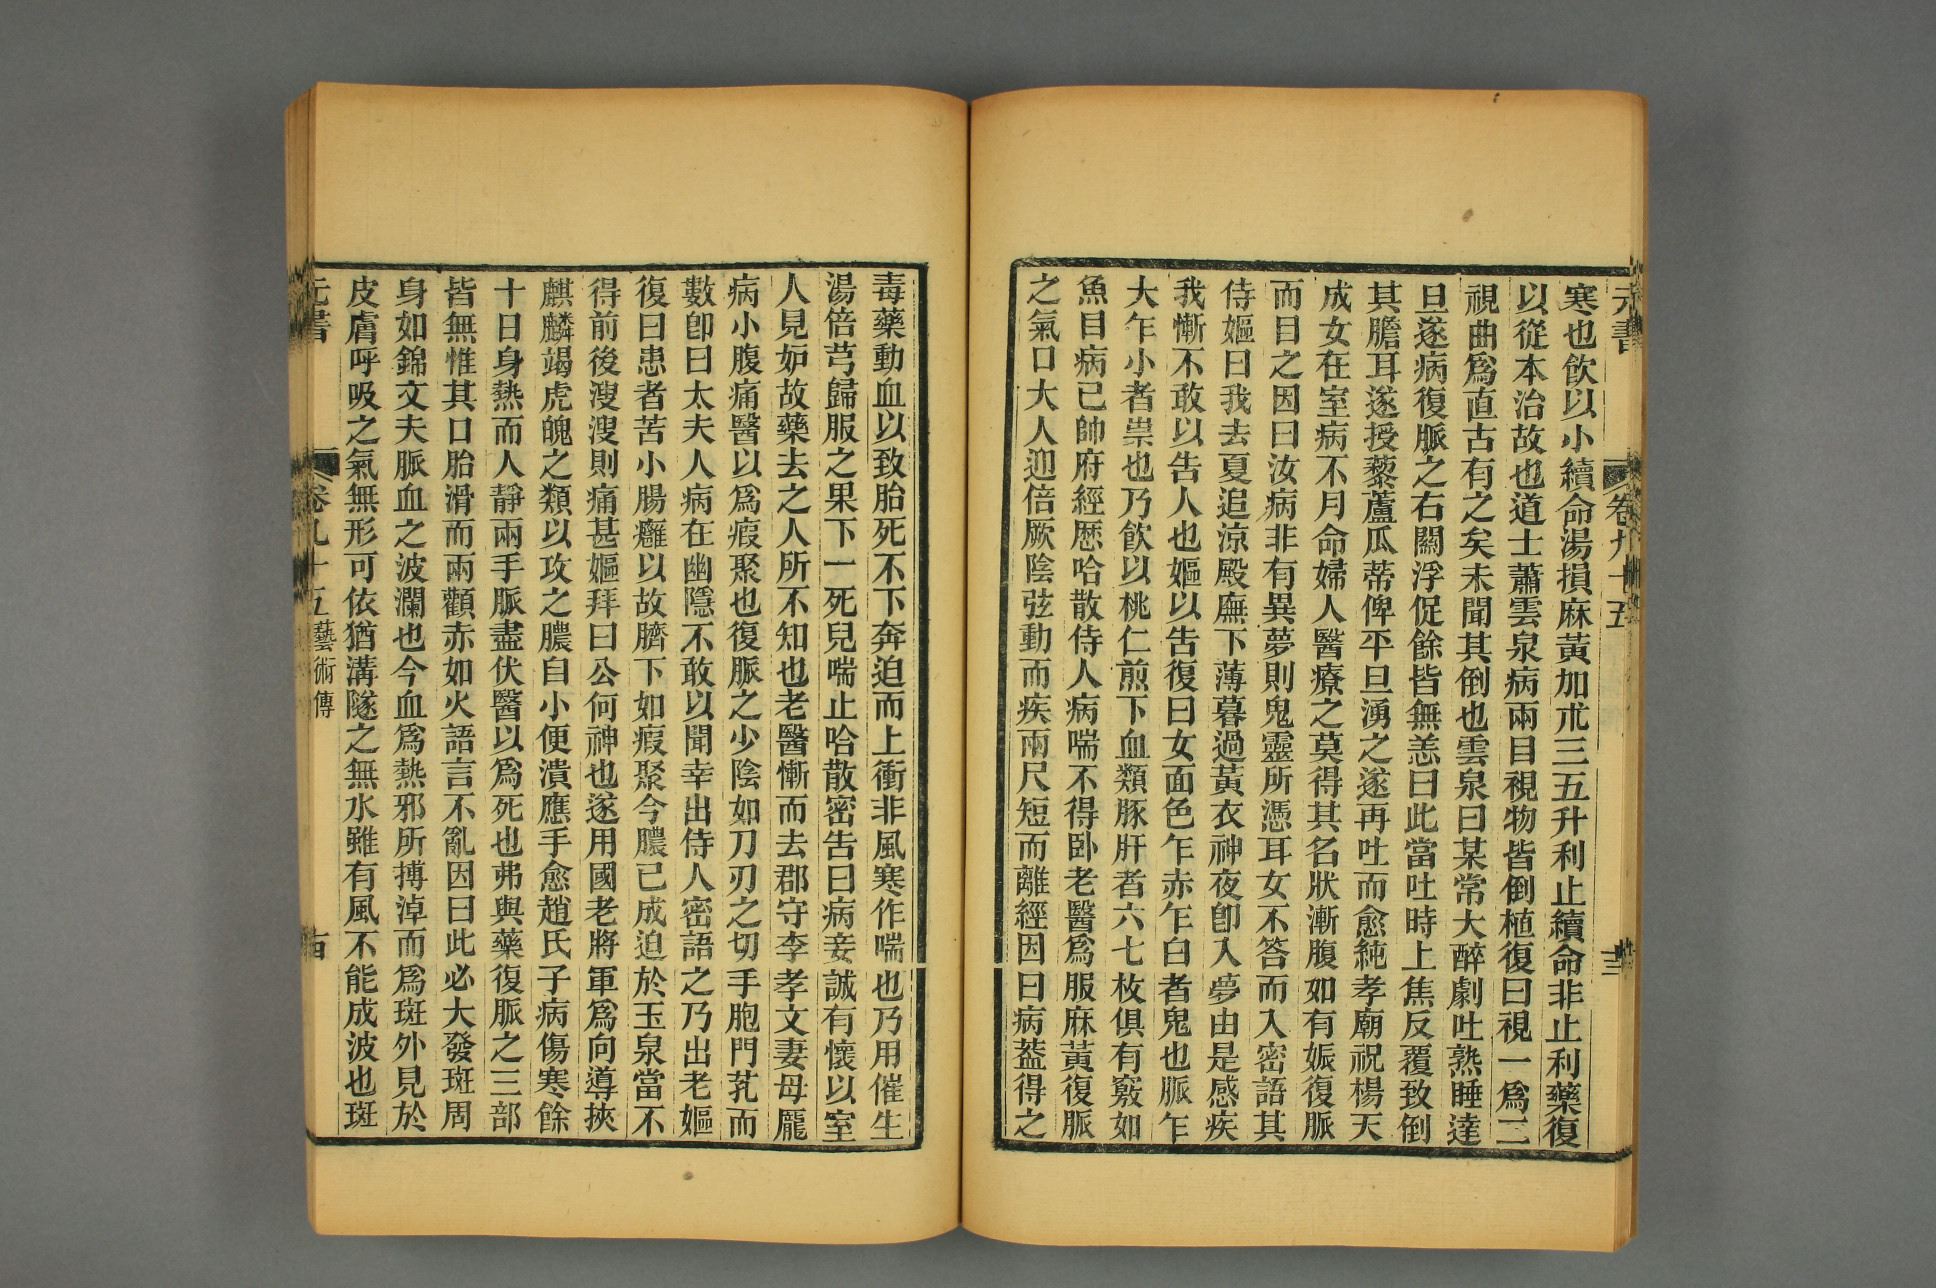 元書
卷九十五
十三
寒也飮以小續命湯損麻黃加朮三五升利止續命非止利藥復
以從本治故也道士蕭雲泉病兩目視物皆倒植復曰視一爲二
視曲爲直古有之矣未聞其倒也雲泉曰某常大醉劇吐熟睡達
旦遂病復脈之右關浮促餘皆無恙曰此當吐時上焦反覆致倒
其膽耳遂授藜蘆瓜蒂俾平旦湧之遂再吐而愈純孝廟祝楊天
成女在室病不月命婦人醫療之莫得其名狀漸腹如有娠復脈
而目之因曰汝病非有異夢則鬼靈所憑耳女不答而入密語其
侍嫗曰我去夏追涼殿廡下薄暮過黃衣神夜卽入夢由是感疾
我慚不敢以告人也嫗以告復曰女面色乍赤乍白者鬼也脈乍
大乍小者祟也乃飮以桃仁煎下血類豚肝者六七枚俱有竅如
魚目病已帥府經歷哈散侍人病喘不得臥老醫爲服麻黃復脈
之氣口大人迎倍厥陰弦動而疾兩尺短而離經因曰病蓋得之
毒藥動血以致胎死不下奔迫而上衝非風寒作喘也乃用催生
湯倍芎歸服之果下一死兒喘止哈散密告曰病妾誠有懷以室
人見妒故藥去之人所不知也老醫慚而去郡守李孝文妻母龐
病小腹痛醫以爲瘕聚也復脈之少陰如刀刃之切手胞門芤而
數卽曰太夫人病在幽隱不敢以聞幸出侍人密語之乃出老嫗
復曰患者苦小腸癰以故臍下如瘕聚今膿已成迫於玉泉當不
得前後溲溲則痛甚嫗拜曰公何神也遂用國老將軍爲向導挾
麒麟竭虎魄之類以攻之膿自小便潰應手愈趙氏子病傷寒餘
十日身熱而人靜兩手脈盡伏醫以爲死也弗與藥復脈之三部
皆無惟其口胎滑而兩顴赤如火語言不亂因曰此必大發斑周
身如錦文夫脈血之波瀾也今血爲熱邪所搏淖而爲斑外見於
皮膚呼吸之氣無形可依猶溝隧之無水雖有風不能成波也斑
元書
卷九十五 藝術傳
十四